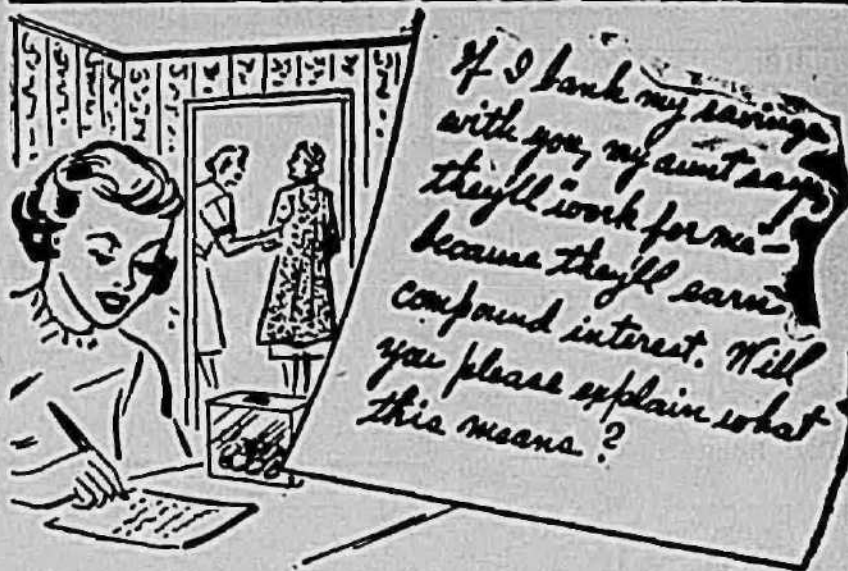 If I bank my savings
with you, my aunt says
they'll "work for me"—
because they'll earn
compound interest. Will
you please explain what
this means?